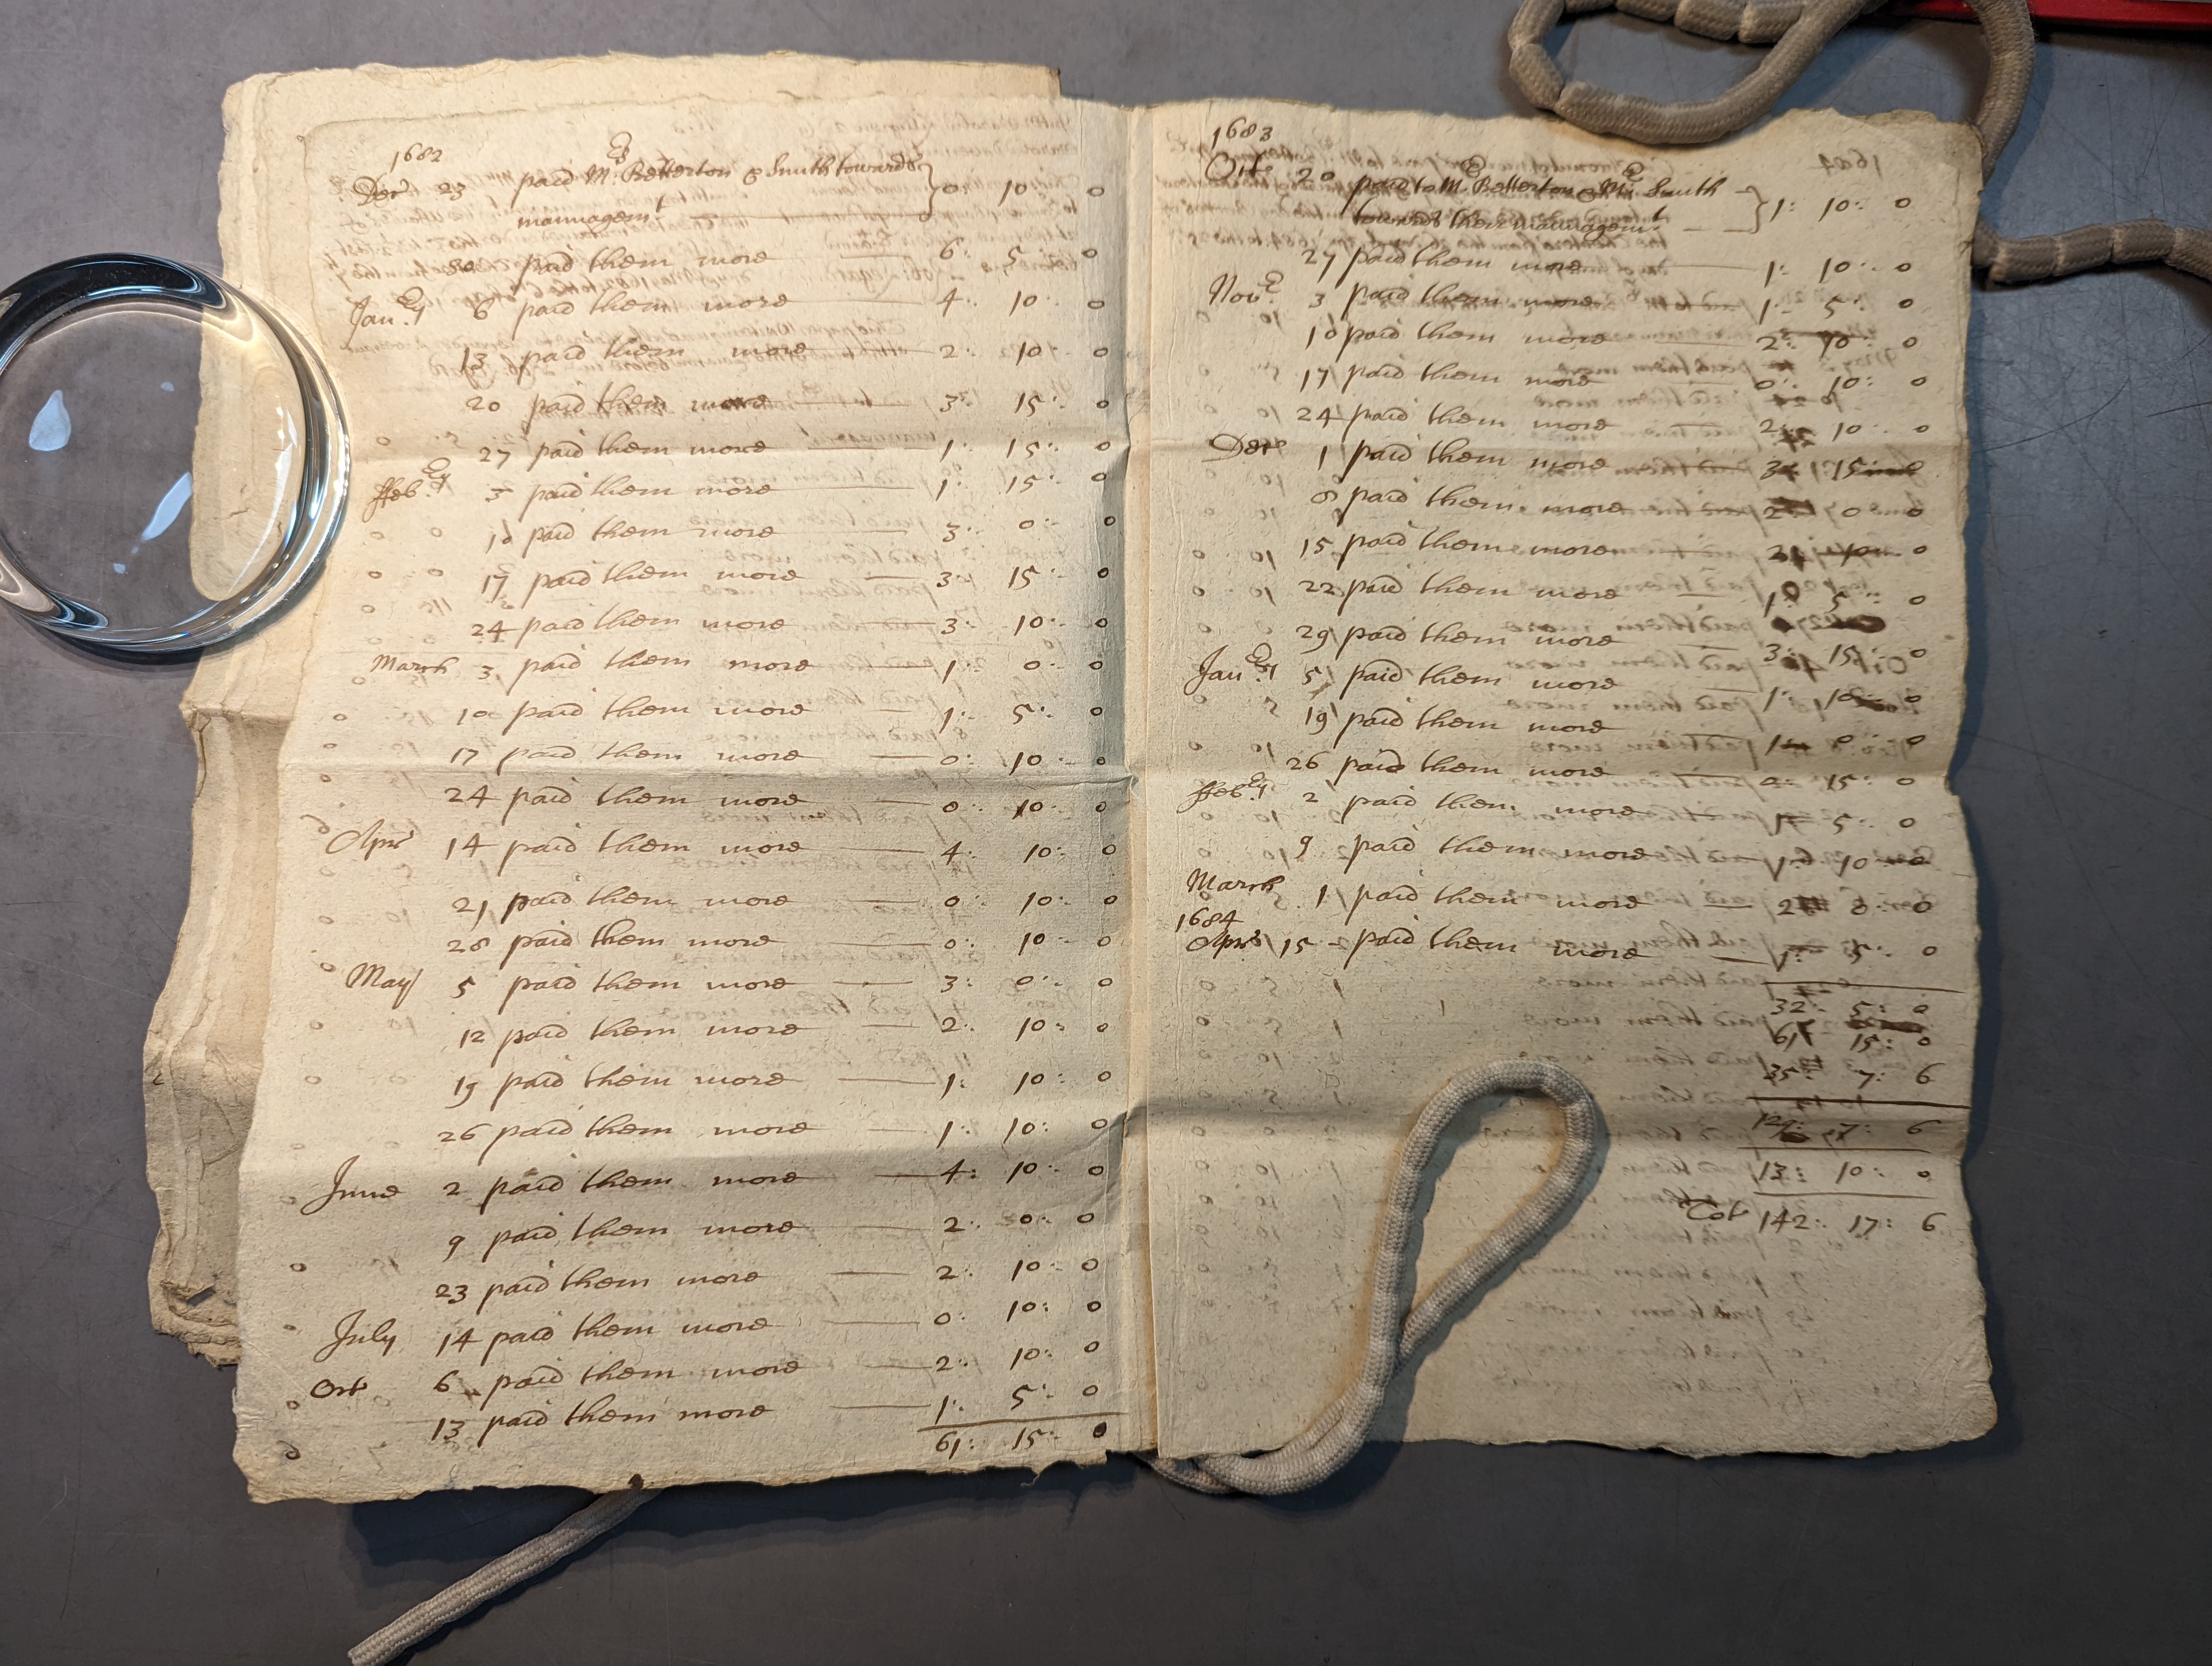 1682
Decr 23 paid Mr Betterton & Smith towards
mannagemt — 0: 10: 0
30 paid them more 6: 5: 0
Janry 6 paid them more — 4: 10: 0
13 paid them more — 2: 10: 0
20 paid them more — 3: 15: 0
27 paid them more — 1: 15: 0
ffebry 3 paid them more — 1: 15: 0
10 paid them more — 3: 0: 0
17 paid them more — 3: 15: 0
24 paid them more — 3: 10: 0
March 3 paid them more — 1: 0: 0
10 paid them more — 1: 5: 0
17 paid them more — 0: 10: 0
24 paid them more — 0: 10: 0
Apr 14 paid them more — 4: 10: 0
21 paid them more — 0: 10: 0
28 paid them more — 0: 10: 0
May 5 paid them more — 3: 0: 0
12 paid them more — 2: 10: 0
19 paid them more — 1: 10: 0
26 paid them more — 1: 10: 0
June 2 paid them more — 4: 10: 0
9 paid them more — 2: 0: 0
23 paid them more — 2: 10: 0
July 14 paid them more — 0: 10: 0
Oct 6 paid them more — 2: 10: 0
13 paid them more — 1: 5: 0
61: 15: 0
1683
Oct 20 paid to Mr Betterton & Mr Smith
towards there mannagemt — 1: 10: 0
27 paid them more — 1: 10: 0
Novr 3 paid them more 1: 5: 0
10 paid them more 2: 10: 0
17 paid them more — 0: 10: 0
24 paid them more — 2: 10: 0
Decr 1 paid them more 3: 15: 0
8 paid them more 2: 0: 0
15 paid them more 10: 0
22 paid them more 1: 5: 0
29 paid them more — 3: 15: 0
Janry 5 paid them more — 1: 10: 0
19 paid them more — 1: 0: 0
26 paid them more — 15: 0
ffebry 2 paid them more 1: 5: 0
9 paid them more — 1: 10: 0
March 1 paid them more — 2: 0
1684
Apr 15 paid them more — 1: 5: 0
32: 5: 0
61: 15: 0
35: 7: 6
129: 7: 6
13: 10: 0
Tot 142: 17: 6